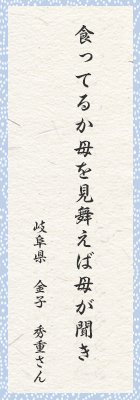 食ってるか母を見舞えば母が聞き
岐阜県　金子　秀重さん